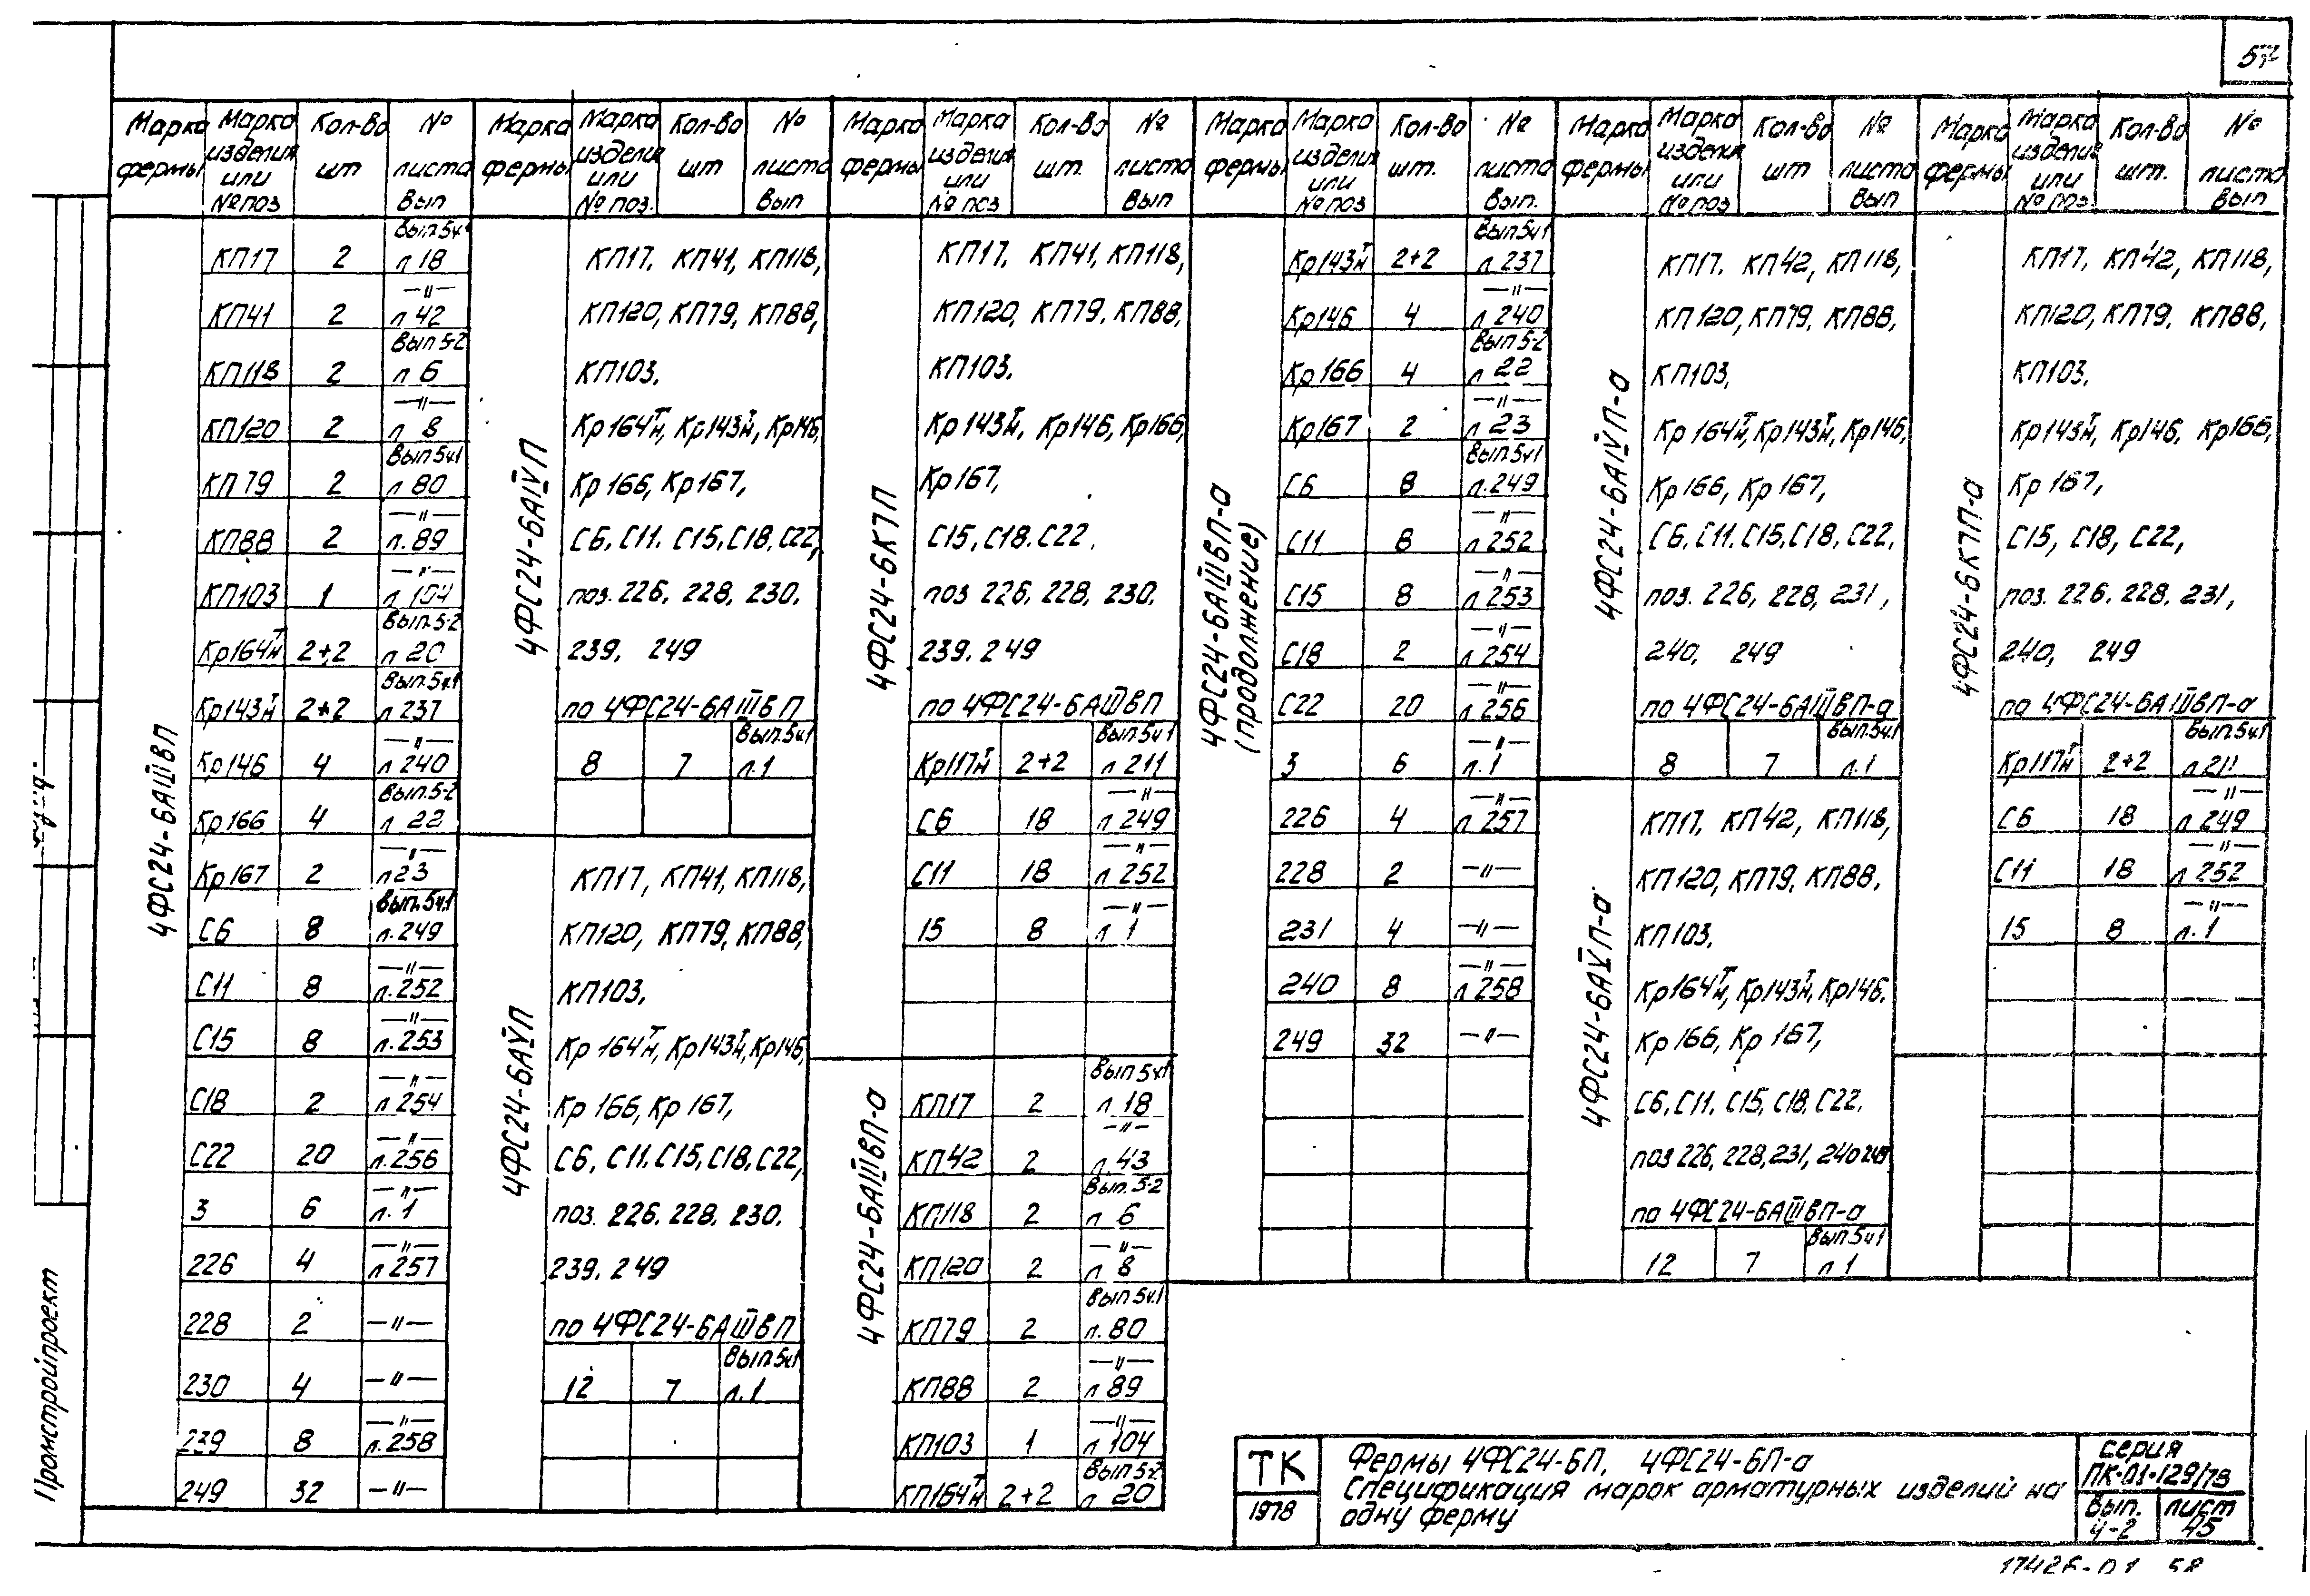 57
Марка фермы | Марка изделия или № поз | Кол-во шт | № листа Вып
4ФС24-6АШВП
КП17 | 2 | Вып.5ч1 л 18
КП41 | 2 | —"— л 42
КП118 | 2 | Вып 5-2 л 6
КП120 | 2 | —"— л 8
КП79 | 2 | Вып.5ч1 л.80
КП88 | 2 | —"— л.89
КП103 | 1 | —"— л 104
Кр164Тн | 2+2 | Вып.5-2 л 20
Кр143Тн | 2+2 | Вып.5ч.1 л 237
Кр146 | 4 | —"— л 240
Кр166 | 4 | Вып.5-2 л 22
Кр167 | 2 | —"— л 23
С6 | 8 | Вып.5ч.1 л.249
С11 | 8 | —"— л.252
С15 | 8 | —"— л.253
С18 | 2 | —"— л 254
С22 | 20 | —"— л.256
3 | 6 | —"— л.1
226 | 4 | —"— л 257
228 | 2 | —"—
230 | 4 | —"—
239 | 8 | —"— л.258
249 | 32 | —"—
Марка фермы | Марка изделия или № поз. | Кол-во шт | № листа Вып
4ФС24-6АІѴП
КП17, КП41, КП118,
КП120, КП79, КП88,
КП103,
Кр164Тн, Кр143Тн, Кр146,
Кр166, Кр167,
С6, С11, С15, С18, С22,
поз. 226, 228, 230,
239, 249
по 4ФС24-6АШВП
8 | 7 | Вып.5ч1 л.1
4ФС24-6АѴП
КП17, КП41, КП118,
КП120, КП79, КП88,
КП103,
Кр164Тн, Кр143Тн, Кр146,
Кр166, Кр167,
С6, С11, С15, С18, С22,
поз. 226, 228, 230,
239, 249
по 4ФС24-6АШВП
12 | 7 | Вып.5ч1 л.1
Марка фермы | Марка изделия или № поз | Кол-во шт. | № листа Вып
4ФС24-6К7П
КП17, КП41, КП118,
КП120, КП79, КП88,
КП103,
Кр143Тн, Кр146, Кр166,
Кр167,
С15, С18, С22,
поз 226, 228, 230,
239, 249
по 4ФС24-6АШВП
Кр117Тн | 2+2 | Вып.5ч1 л 211
С6 | 18 | —"— л 249
С11 | 18 | —"— л 252
15 | 8 | —"— л 1
4ФС24-6АШВП-а
КП17 | 2 | Вып 5ч1 л 18
КП42 | 2 | —"— л.43
КП118 | 2 | Вып. 5-2 л 6
КП120 | 2 | —"— л 8
КП79 | 2 | Вып 5ч.1 л.80
КП88 | 2 | —"— л 89
КП103 | 1 | —"— л 104
КП164Тн | 2+2 | Вып 5-2 л 20
Марка фермы | Марка изделия или № поз | Кол-во шт. | № листа Вып.
4ФС24-6АШВП-а (продолжение)
Кр143Тн | 2+2 | Вып 5ч1 л 237
Кр146 | 4 | —"— л 240
Кр166 | 4 | Вып 5-2 л 22
Кр167 | 2 | —"— л 23
С6 | 8 | Вып.5ч1 л.249
С11 | 8 | —"— л 252
С15 | 8 | —"— л 253
С18 | 2 | —"— л 254
С22 | 20 | —"— л 256
3 | 6 | —"— л.1
226 | 4 | —"— л 257
228 | 2 | —"—
231 | 4 | —"—
240 | 8 | —"— л 258
249 | 32 | —"—
Марка фермы | Марка изделия или № поз | Кол-во шт | № листа Вып
4ФС24-6АІѴП-а
КП17, КП42, КП118,
КП120, КП79, КП88,
КП103,
Кр164Тн, Кр143Тн, Кр146,
Кр166, Кр167,
С6, С11, С15, С18, С22,
поз. 226, 228, 231,
240, 249
по 4ФС24-6АШВП-а
8 | 7 | Вып.5ч1 л.1
4ФС24-6АѴП-а
КП17, КП42, КП118,
КП120, КП79, КП88,
КП103,
Кр164Тн, Кр143Тн, Кр146,
Кр166, Кр167,
С6, С11, С15, С18, С22,
поз 226, 228, 231, 240 249
по 4ФС24-6АШВП-а
12 | 7 | Вып 5ч1 л 1
Марка фермы | Марка изделия или № поз | Кол-во шт. | № листа Вып
4ФС24-6К7П-а
КП17, КП42, КП118,
КП120, КП79, КП88,
КП103,
Кр143Тн, Кр146, Кр166,
Кр167,
С15, С18, С22,
поз. 226, 228, 231,
240, 249
по 4ФС24-6АШВП-а
Кр117Тн | 2+2 | Вып.5ч1 л 211
С6 | 18 | —"— л 249
С11 | 18 | —"— л 252
15 | 8 | —"— л.1
Промстройпроект
ТК
1978
Фермы 4ФС24-6П, 4ФС24-6П-а
Спецификация марок арматурных изделий на
одну ферму
серия
ПК-01-129/78
Вып. 4-2
лист 45
17426-01 58